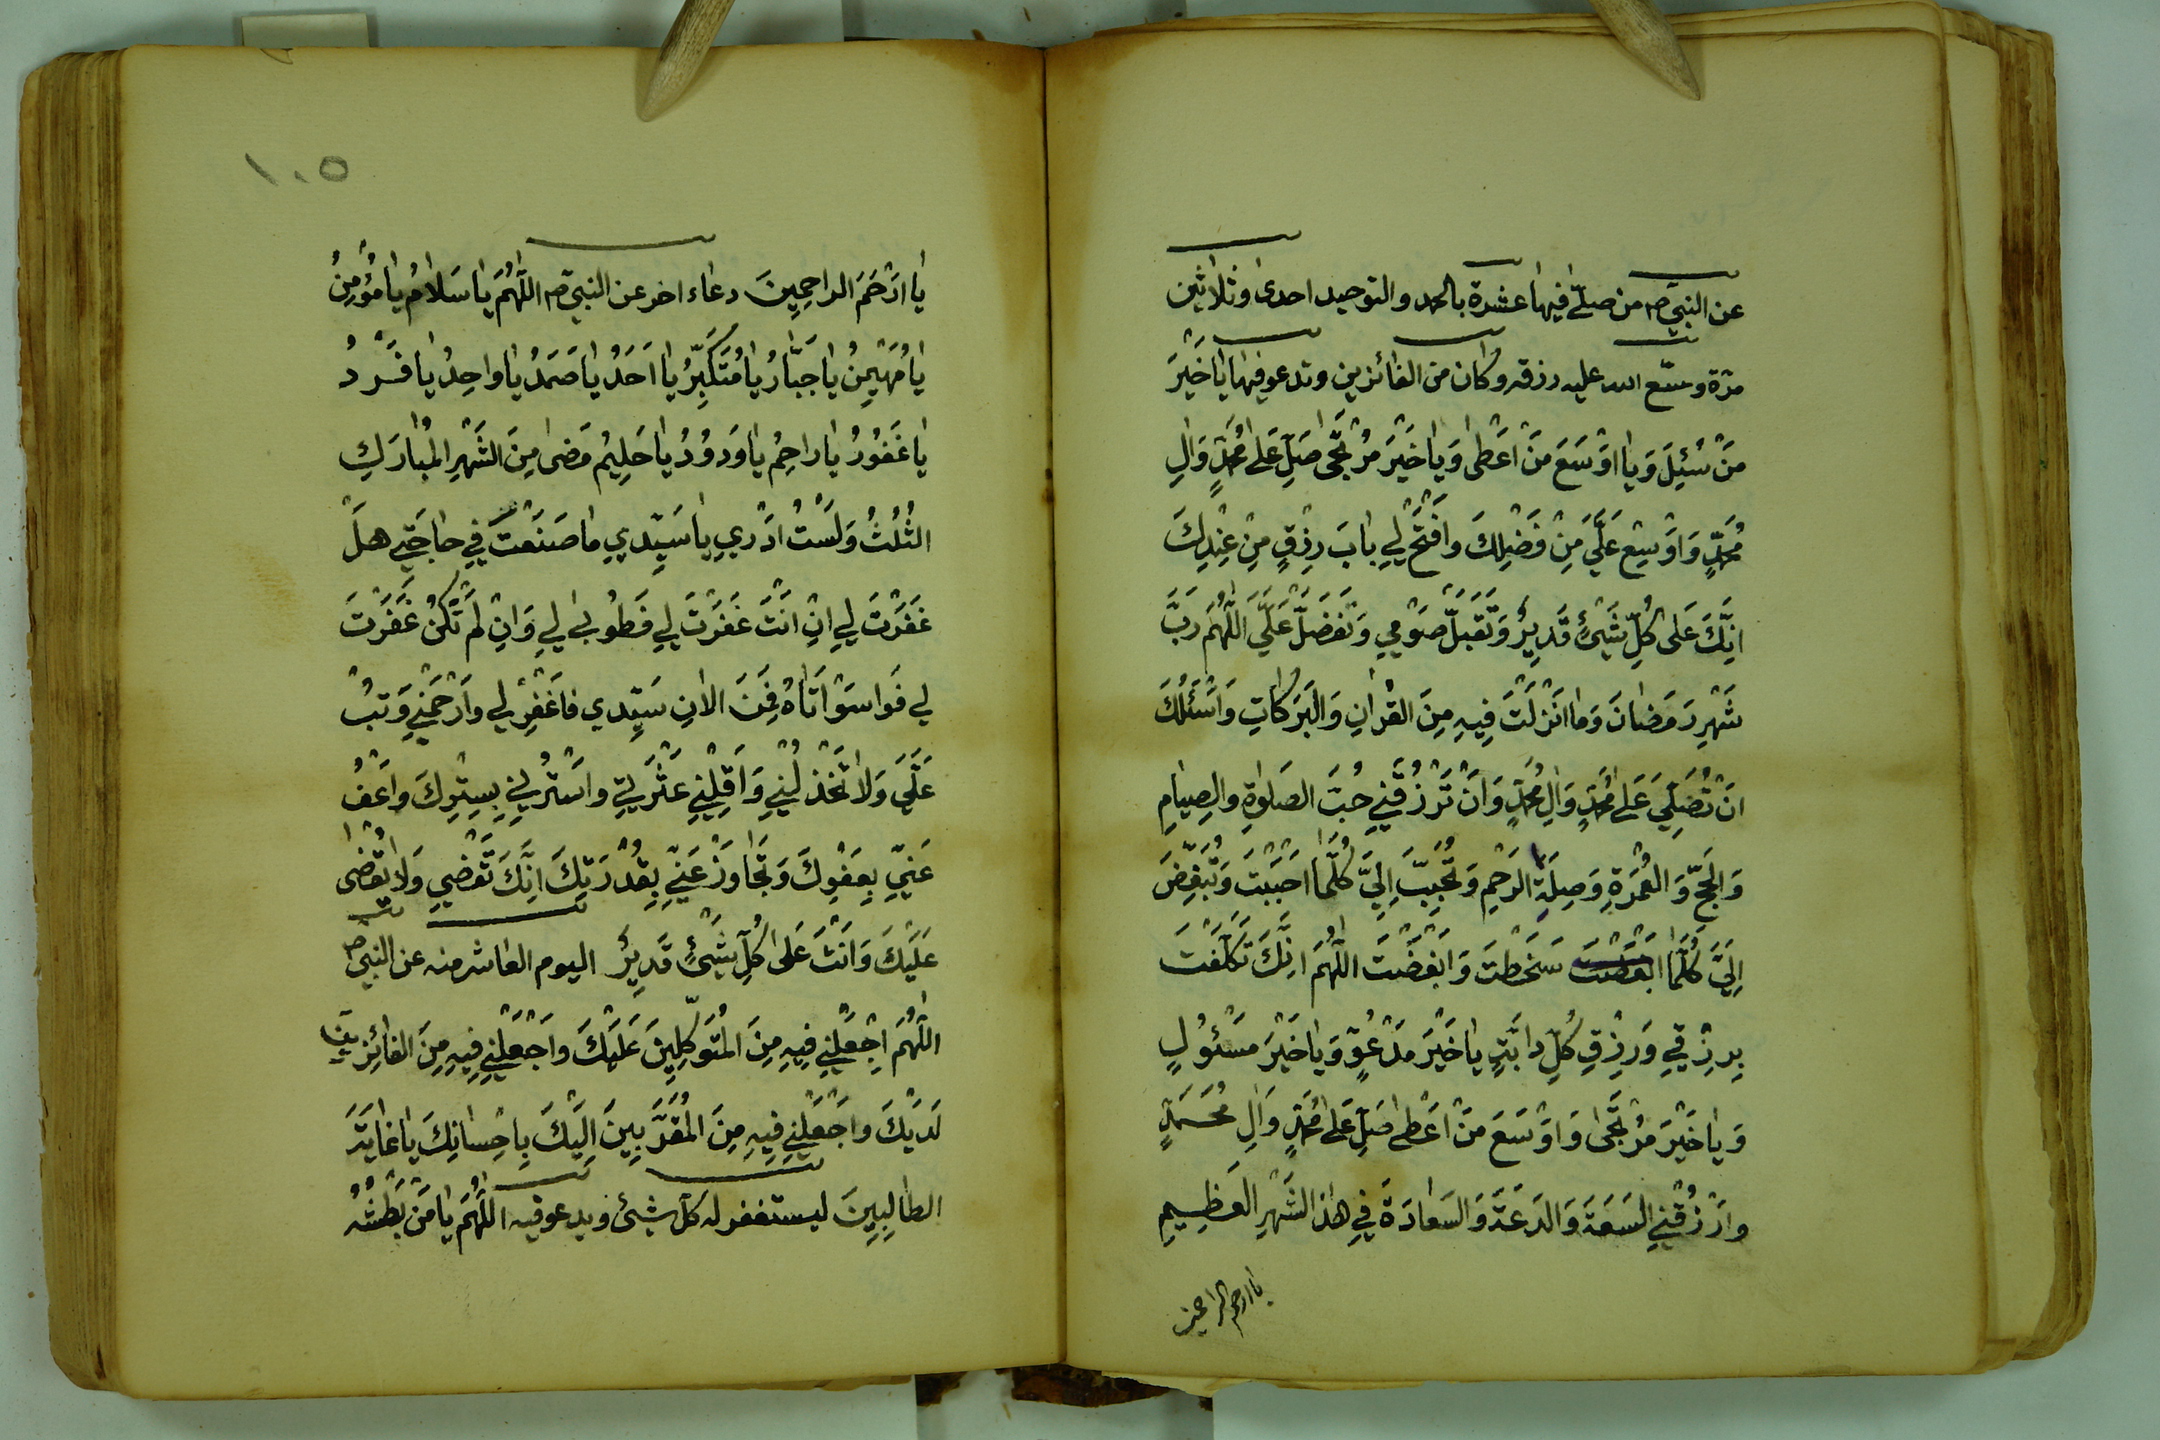 عن النبي ص من صلّى فيها عشرة بالحمد والتوحيد احدى وثلاثين
مرّة وسّع الله عليه رزقه وكان من الفائزين وتدعو فيها يا خَيْرَ
مَنْ سُئِلَ وَيا اَوْسَعَ مَنْ اَعْطى وَيا خَيْرَ مُرْتَجى صَلِّ عَلى مُحَمَّدٍ وَالِ
مُحَمَّدٍ وَاَوْسِعْ عَلَيَّ مِنْ فَضْلِكَ وافْتَحْ لِي بابَ رِزْقٍ مِنْ عِنْدِكَ
اِنَّكَ عَلى كُلِّ شَيْئٍ قَدِيرٌ وَتَقَبَّلْ صَوْمِي وَتَفَضَّلْ عَلَيَّ اللّهُمَّ رَبَّ
شَهْرِ رَمَضانَ وَما اَنْزَلْتَ فِيهِ مِنَ القُرْانِ وَالبَرَكاتِ وَاَسْئَلُكَ
اَنْ تُصَلِّيَ عَلى مُحَمَّدٍ وَالِ مُحَمَّدٍ وَاَنْ تَرْزُقَنِي حُبَّ الصَلوةِ والصِيامِ
وَالحَجِّ وَالعُمْرَةِ وَصِلَةِ الرَحِمِ وَتُحَبِّبَ اِلَيَّ كُلَّما اَحْبَبْتَ وَتُبَغِّضَ
اِلَيَّ كُلَّما ابغضت سَخَطْتَ وَاَبْغَضْتَ اللّهُمَّ اِنَّكَ تَكَلَّفْتَ
بِرِزْقِي وَرِزْقِ كُلِّ دابَّةٍ يا خَيْرَ مَدْعُوٍّ وَيا خَيْرَ مَسْئُولٍ
وَيا خَيْرَ مُرْتَجى وَاَوْسَعَ مَنْ اَعْطى صَلِّ عَلى مُحَمَّدٍ وَالِ مُحَمَّدٍ
وارْزُقْنِي السَعَةَ وَالدَعَةَ وَالسَعادَةَ فِي هذا الشَهْرِ العَظِيمِ
يا ارحم الراحمين
١٠٥
يا اَرْحَمَ الراحِمِينَ دعاء اخر عن النبي ص اللّهُمَّ يا سَلامُ يا مُؤْمِنُ
يا مُهَيْمِنُ يا جَبّارُ يا مُتَكَبِّرُ يا اَحَدُ يا صَمَدُ يا واحِدُ يا فَرْدُ
يا غَفُورُ يا راحِمُ يا وَدُودُ يا حَلِيمُ مَضى مِنَ الشَهْرِ المُبارَكِ
الثُلُثُ وَلَسْتُ اَدْرِي يا سَيِّدِي ما صَنَعْتَ فِي حاجَتِي هَلْ
غَفَرْتَ لِي اِنْ اَنْتَ غَفَرْتَ لِي فَطُوبى لِي وَاِنْ لَمْ تَكُنْ غَفَرْتَ
لِي فَوا سَوْاَتاهُ فَمِنَ الانِ سَيِّدِي فاغْفِرْ لِي وارْحَمْنِي وَتُبْ
عَلَيَّ وَلا تَخْذُلْنِي وَاَقِلْنِي عَثْرَتِي واسْتُرْنِي بِسِتْرِكَ واعْفُ
عَنِّي بِعَفْوِكَ وَتَجاوَزْ عَنِّي بِقُدْرَتِكَ اِنَّكَ تَقْضِي وَلا يُقْضى
عَلَيْكَ وَاَنْتَ عَلى كُلِّ شَيْئٍ قَدِيرٌ اليوم العاشر منه عن النبي ص
اللّهُمَّ اجْعَلْنِي فِيهِ مِنَ المُتَوَكِّلِينَ عَلَيْكَ واجْعَلْنِي فِيهِ مِنَ الفائِزِينَ
لَدَيْكَ واجْعَلْنِي فِيهِ مِنَ المُقَرَّبِينَ اِلَيْكَ بِاِحْسانِكَ يا غايَةَ
الطالِبِينَ ليستغفر له كلّ شيئ ويدعو فيه اللّهُمَّ يا مَنْ بَطْشُهُ